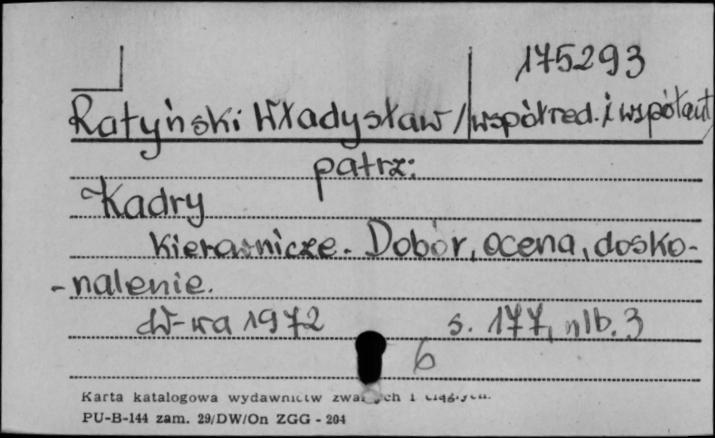 175293
Ratyński Władysław /współred. i współaut/
patrz:
Kadry
Kierownicze. Dobór, ocena, dosko-
-nalenie.
W-wa 1972 s. 177, nlb. 3
6
Karta katalogowa wydawnictw zwartych i ciągłych.
PU-B-144 zam. 29/DW/On ZGG - 204